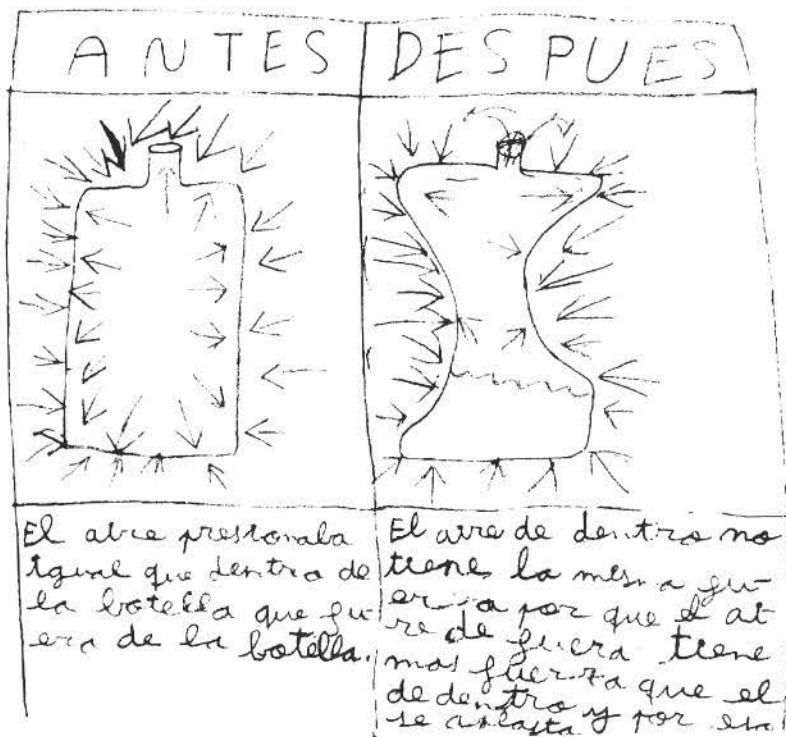 ANTES
DESPUES
El aire presionaba
igual que dentro de
la botella que fu-
era de la botella.
El aire de dentro no
tiene la misma fu-
erza por que el ai-
re de fuera tiene
mas fuerza que el
de dentro y por eso
se aplasta